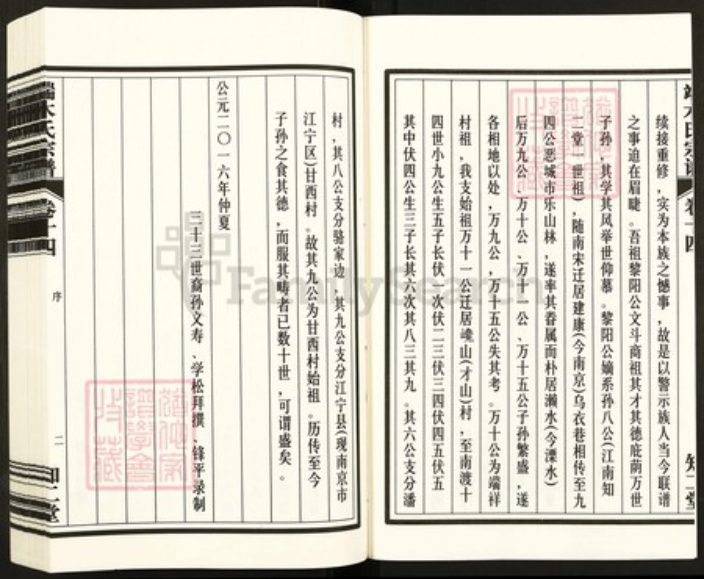 续接重修，实为本族之憾事，故是以警示族人当今联谱
之事迫在眉睫。吾祖黎阳公文斗商祖其才其德庇荫万世
子孙，其学其风举世仰慕。黎阳公嫡系孙八公(江南知
二堂一世祖)，随南宋迁居建康(今南京)乌衣巷相传至九
四公恶城市乐山林，遂率其眷属而朴居濑水(今溧水)
后万九公、万十公、万十一公、万十五公子孙繁盛，遂
各相地以处，万九公，万十五公失其考。万十公为端祥
村祖，我支始祖万十一公迁居嵕山(才山)村，至南渡十
四世小九公生五子长伏一次伏二三伏三四伏四五伏五
其中伏四公生三子长其六次其八三其九。其六公支分潘
村，其八公支分骆家边，其九公支分江宁县(现南京市
江宁区)甘西村。故其九公为甘西村始祖。历传至今
子孙之食其德，而服其畴者已数十世，可谓盛矣。
公元二〇一六年仲夏
三十三世裔孙文寿、学松拜撰、锋平录制
端木氏宗谱
卷十四
序
二
知二堂
端木氏宗谱
卷十四
知二堂
FamilySearch